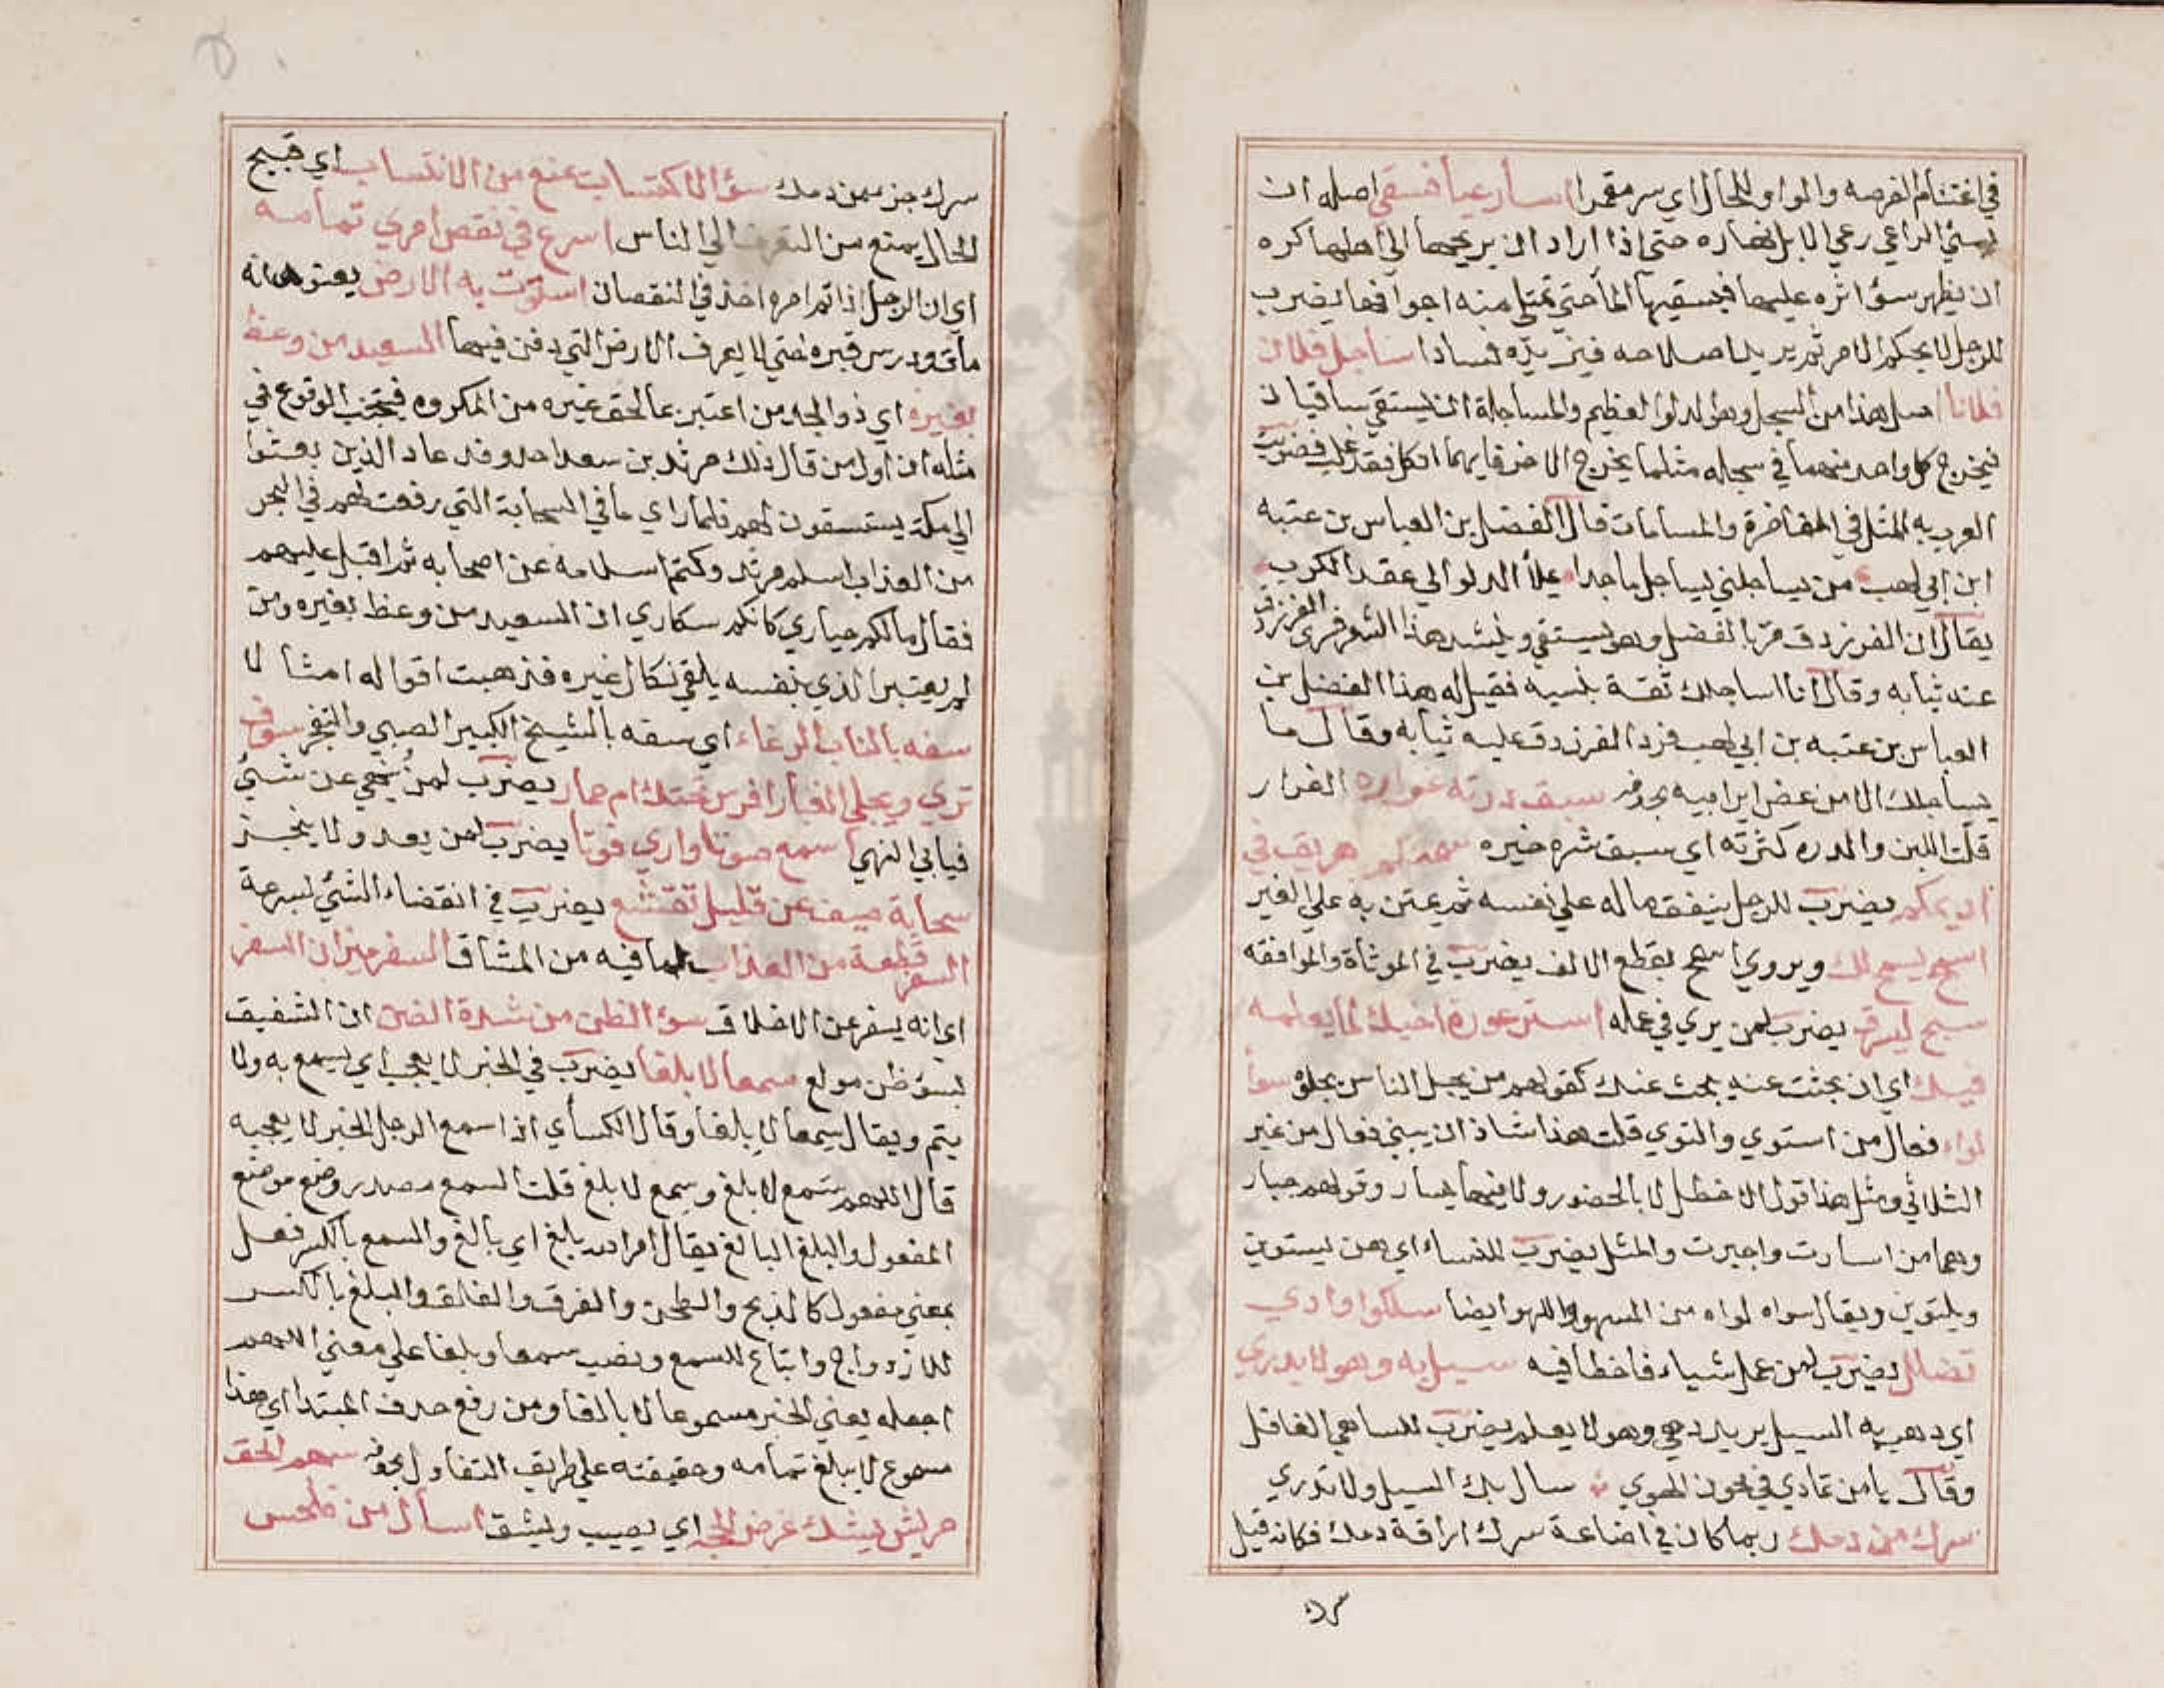 في اغتنام الفرصه والواو للحال اي سر مقمرا اساء رعيا فسقي اصله ان
يسئ الراعي رعي الابل نهاره حتي اذا اراد ان يريحها الي اهلها كره
ان يظهر سؤ اثره عليها فيسقيها الماء حتي تمتلي منه اجوافها يضرب
للرجل لا يحكم الامر ثم يريد اصلاحه فيزيده فسادا ساجل فلان
فلانا اصل هذا من السجل وهو الدلو العظيم والمساجلة ان يستقي ساقيان
فيخرج كل واحد منهما في سجله مثلما يخرج الاخر فايهما انكل فقد غلب فضربت
العرب به المثل في المفاخرة والمسامات قال الفضل بن العباس بن عتبه
ابن ابي لهب من يساجلني يساجل ماجدا يملأ الدلو الي عقد الكرب
يقال ان الفرزدق مر بالفضل وهو يستقي وينشد هذا الشعر فسري الفرزدق
عنه ثيابه وقال انا اساجلك ثقة بنسبه فقيل له هذا الفضل بن
العباس بن عتبه بن ابي لهب فرد الفرزدق عليه ثيابه وقال ما
يساجلك الا من عض اير ابيه بجروفه سبق درته غراره الغرار
قلت اللبن والدره كثرته اي سبق شره خيره سمنكم هريق في
اديمكم يضرب للرجل ينفق ماله علي نفسه ثم يمتن به علي الغير
اسمح يسمح لك ويروي اسمح بقطع الالف يضرب في الموثاة والموافقه
سبح ليسرق يضرب لمن يري في عمله استر عورة اخيك لما يعلمه
فيك اي ان بحثت عنه بحث عنك كقولهم من يجبل الناس يجلوه سوأ
لواء فعال من استوي والتوي قلت هذا شاذ ان يبني فعال من غير
الثلاثي ومثل هذا قول الاخطل لا بالحضور ولا فيها بسار وقولهم جبار
وهما من اسارت واجبرت والمثل يضرب للنساء اي هن يستوين
ويلتوين ويقال سواه لواه من السهو واللهو ايضا سلكوا وادي
تضلل يضرب لمن عمل شياء فاخطا فيه سيل به وهو لا يدري
اي ذهب به السيل يريد دهي وهو لا يعلم يضرب للساهي الغافل
وقال يا من تمادي في مجون الهوي سال بك السيل ولا تدري
سرك من دمك ربما كان في اضاعة سرك اراقة دمك فكانه قيل
سرك
سرك جز من دمك سؤ الاكتساب يمنع من الانتساب اي قبيح
الحال يمنع من التعرف الي الناس اسرع في نقص امري تمامه
اي ان الرجل اذا تم امره اخذ في النقصان استوت به الارض يعنون انه
مات ودرس قبره حتي لا يعرف الارض التي دفن فيها السعيد من وعظ
بغيره اي ذو الجد من اعتبر بما لحق غيره من المكروه فيجتنب الوقوع في
مثله ان اول من قال ذلك مرثد بن سعد احد وفد عاد الذين بعثوا
الي مكة يستسقون لهم فلما راي ما في السحابة التي رفعت لهم في البحر
من العذاب اسلم مرثد وكتم اسلامه عن اصحابه ثم اقبل عليهم
فقال ما لكم حياري كانكم سكاري ان السعيد من وعظ بغيره ومن
لم يعتبر الذي بنفسه يلقي نكال غيره فذهبت اقواله امثالا
سفه بالناب الرغاء اي سفه بالشيخ الكبير الصبي والتبختر سوف
تري ويجلي الغبار افرس تحتك ام حمار يضرب لمن ينهي عن شئ
فيابي النهي اسمع صوتا واري فوتا يضرب لمن يعد ولا ينجز
سحابة صيف عن قليل تقشع يضرب في انقضاء الشئ لسرعة
السفر قطعة من العذاب لما فيه من المشاق السفر ميزان السفر
اي انه يسفر عن الاخلاق سؤ الظن من شدة الضن ان الشفيق
بسؤ ظن مولع سمعا لا بلغا يضرب في الخبر لا يعجب اي يسمع به ولا
يتم ويقال سمعا لا بلغا وقال الكسأي اذا سمع الرجل الخبر لا يعجبه
قال اللهم سمع لا بلغ وسمع لا بلغ قلت السمع مصدر وضع موضع
المفعول والبلغ البالغ يقال امر الله بلغ اي بالغ والسمع بالكسر فعل
بمعني مفعول كالذبح والطحن والفرق والفالق والبلغ بالكسر
للازدواج واتباع للسمع ونصب سمعا وبلغا علي معني اللهم
اجعله يعني الخبر مسموعا لا بالغا ومن رفع حذف المبتدا اي هذا
مسموع لا يبلغ تمامه وحقيقته علي طريق التفاول بجوفه سهم الحق
مريش يشك غرض الحجه اي يصيب ويشق اسأل من فلحس